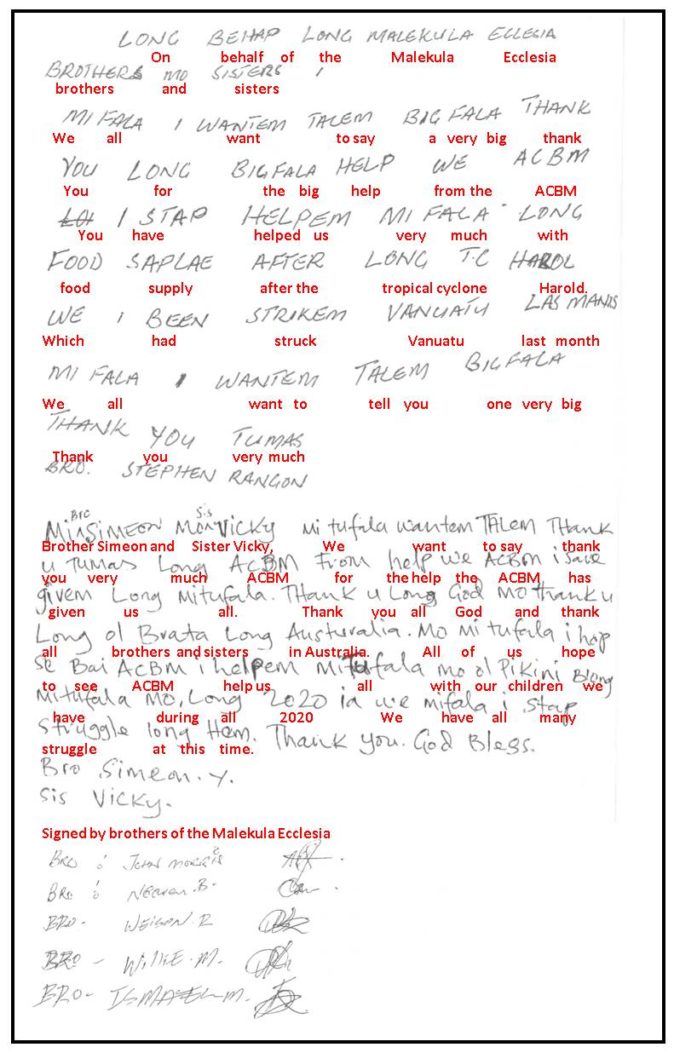 LONG BEHAP LONG MALEKULA ECLESIA
On behalf of the Malekula Ecclesia
BROTHERS MO SISTERS
brothers and sisters
MI FALA I WANTEM TALEM BIG FALA THANK
We all want to say a very big thank
YOU LONG BIGFALA HELP WE ACBM
You for the big help from the ACBM
I STAP HELPEM MI FALA LONG
You have helped us very much with
FOOD SAPLAE AFTER LONG T.C HAROL
food supply after the tropical cyclone Harold.
WE I BEEN STRIKEM VANUATU LAS MANIS
Which had struck Vanuatu last month
MI FALA I WANTEM TALEM BIGFALA
We all want to tell you one very big
THANK YOU TUMAS
Thank you very much
BRO. STEPHEN RANGON
Bro Sis
SIMEON VICKY mi tufala wantem TALEM Thank
Brother Simeon and Sister Vicky, We want to say thank
u Tumas Long ACBM From help we ACBM i save
you very much ACBM for the help the ACBM, has
givem Long mitufala. Thank u Long God mo thank u
given us all. Thank you all God and thank
Long ol Brata Long Australia. Mo mi tufala i hop
all brothers and sisters in Australia. All of us hope
se Bai ACBM i helpem mitufala mo ol Pikini Blong
to see ACBM help us all with our children we
mitufala mo, Long 2020 ia we mifala i stap
have during all 2020 We have all many
struggle long Hem. Thank you. God Bless.
struggle at this time.
Bro Simeon. Y.
Sis Vicky.
Signed by brothers of the Malekula Ecclesia
BRO : JOHN
BRO : B.
BRO - WEISON. R
BRO - WILLIE. M.
BRO - ISMAEL. M.